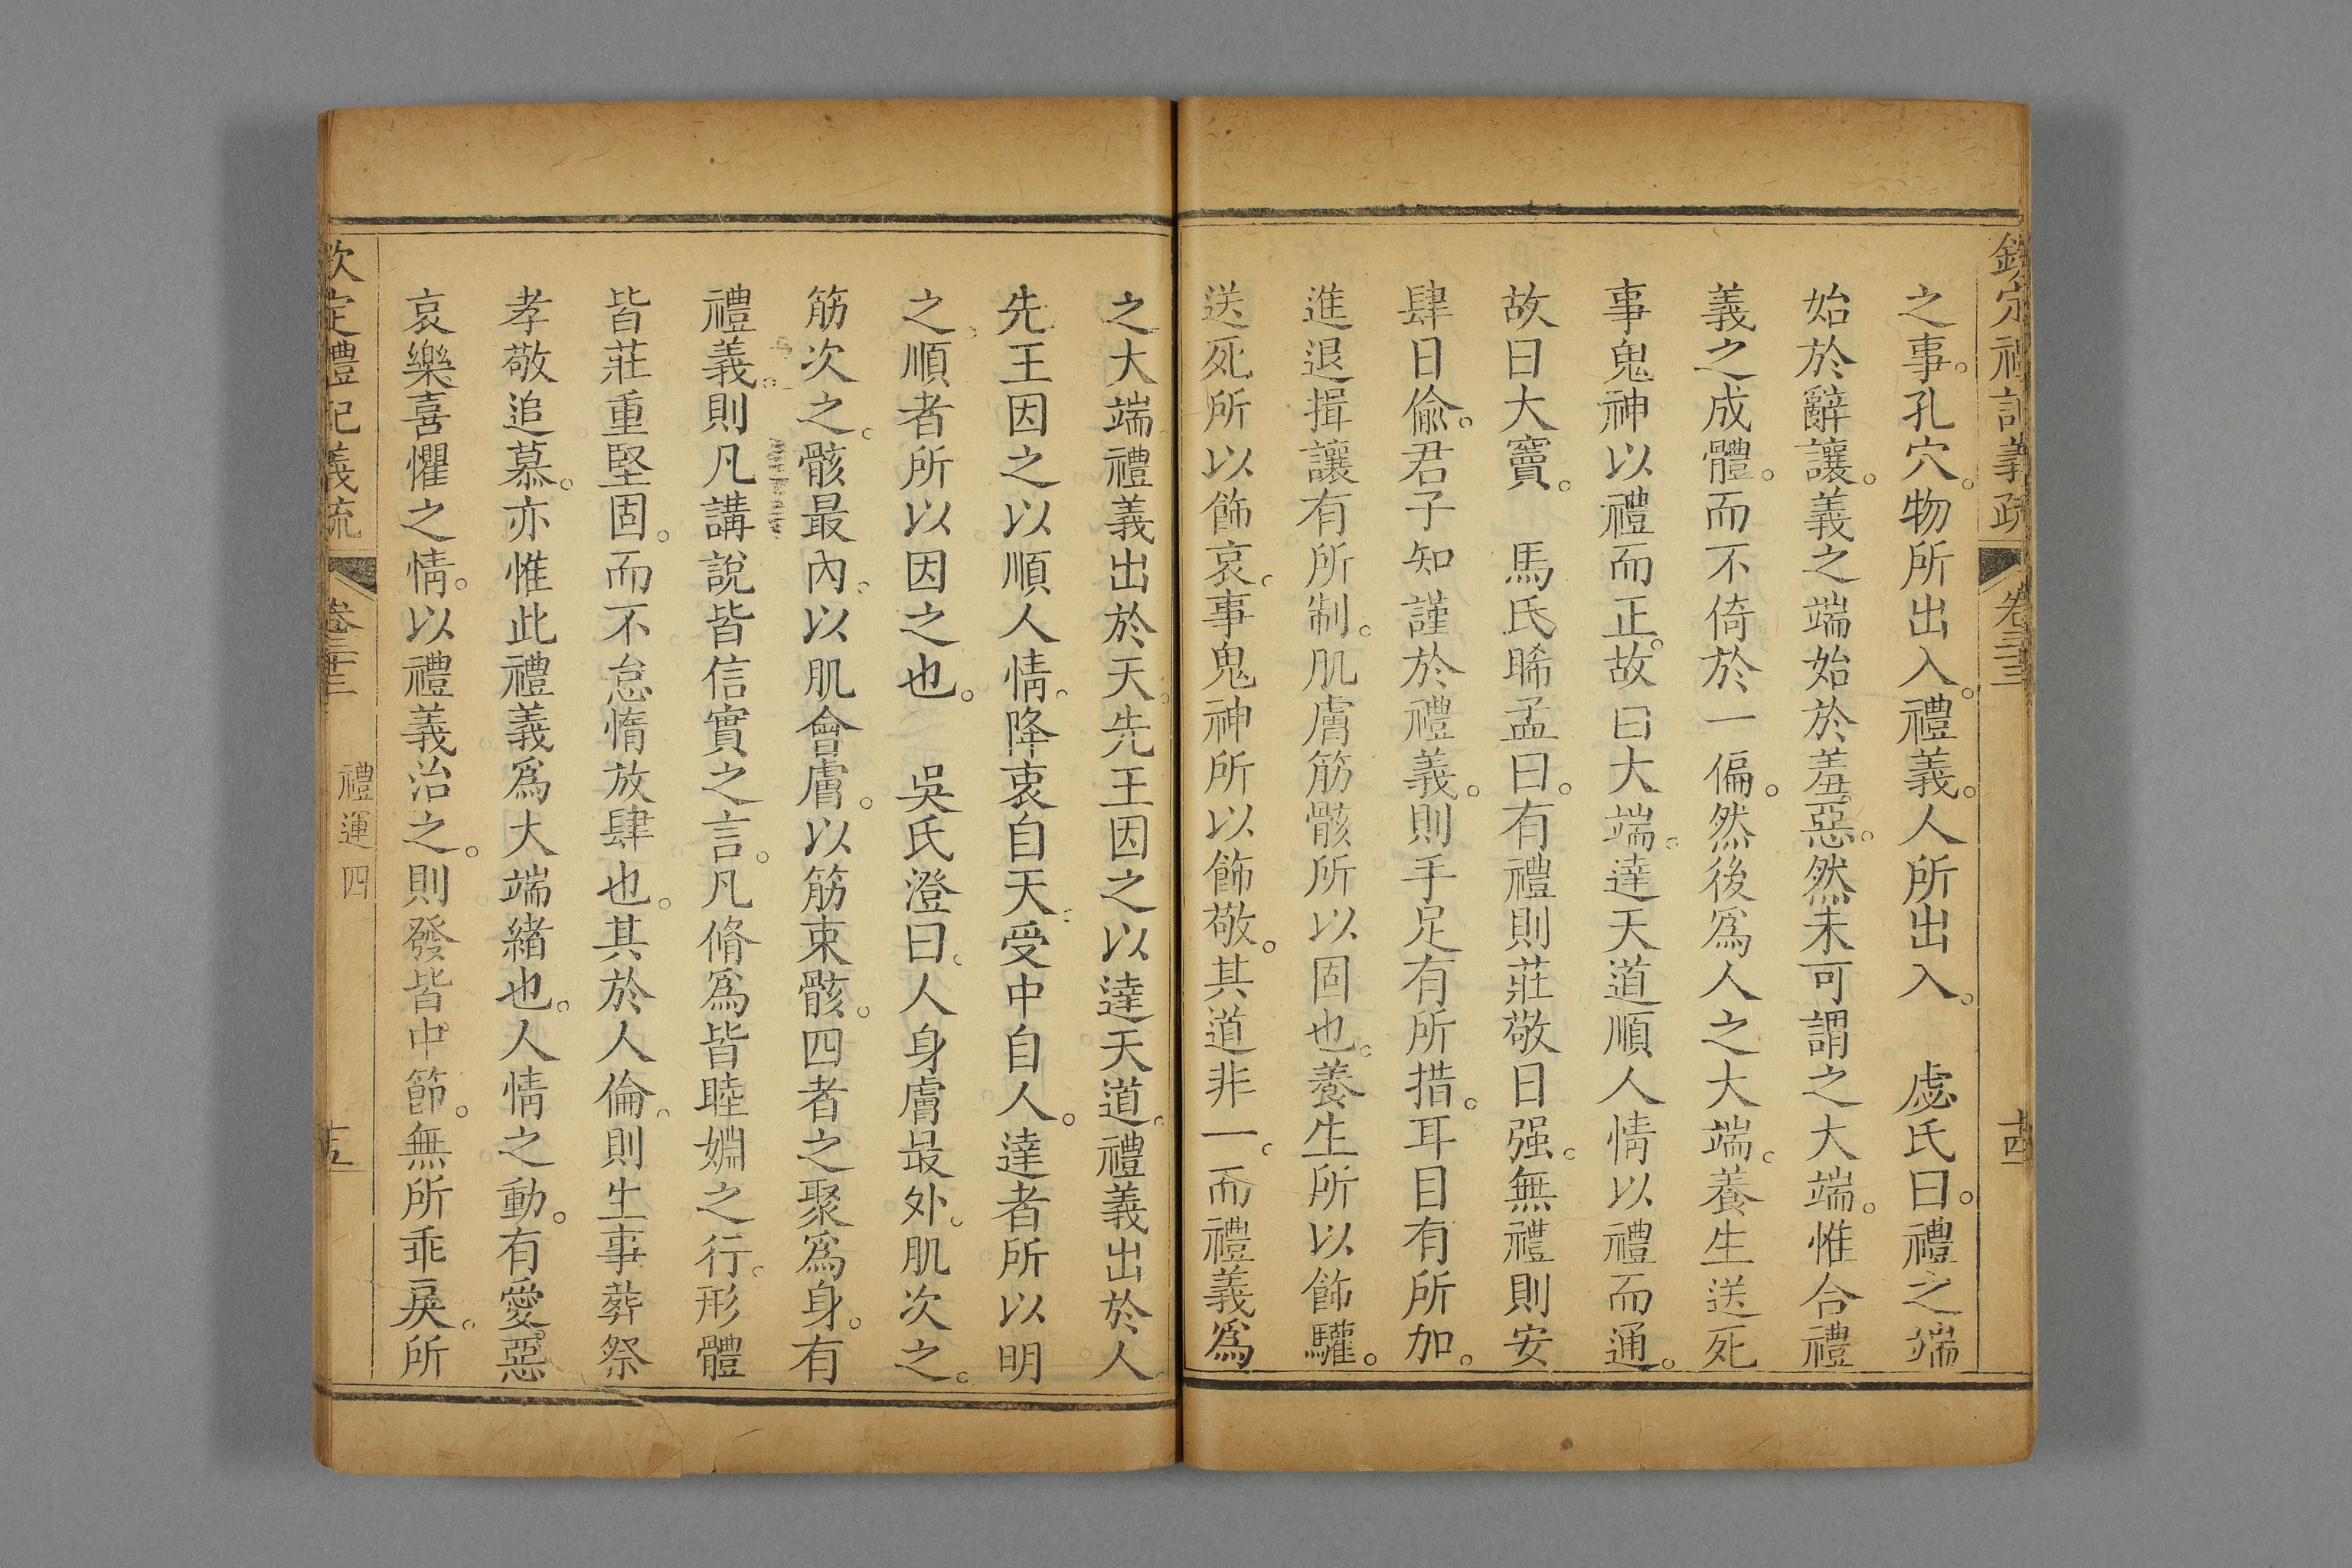 欽定禮記義疏 卷三十三 十四
之事。孔穴。物所出入。禮義。人所出入。 虙氏曰。禮之端
始於辭讓。義之端始於羞惡。然未可謂之大端。惟合禮
義之成體。而不倚於一偏。然後爲人之大端。養生送死
事鬼神以禮而正。故曰大端。達天道順人情以禮而通。
故曰大竇。 馬氏睎孟曰。有禮則莊敬日强。無禮則安
肆日偸。君子知謹於禮義。則手足有所措。耳目有所加。
進退揖讓有所制。肌膚筋骸所以固也。養生所以飾驩。
送死所以飾哀。事鬼神所以飾敬。其道非一。而禮義爲
之大端禮義出於天。先王因之以達天道。禮義出於人。
先王因之以順人情。降衷自天。受中自人。達者所以明
之。順者所以因之也。 吳氏澄曰。人身膚最外。肌次之。
筋次之。骸最內。以肌會膚。以筋束骸。四者之聚爲身。有
禮義。則凡講說皆信實之言。凡脩爲皆睦婣之行。形體
皆莊重堅固。而不怠惰放肆也。其於人倫。則生事葬祭
孝敬追慕。亦惟此禮義爲大端緒也。人情之動。有愛惡
哀樂喜懼之情。以禮義治之。則發皆中節。無所乖戾。所
欽定禮記義疏 卷三十三 禮運四 十五